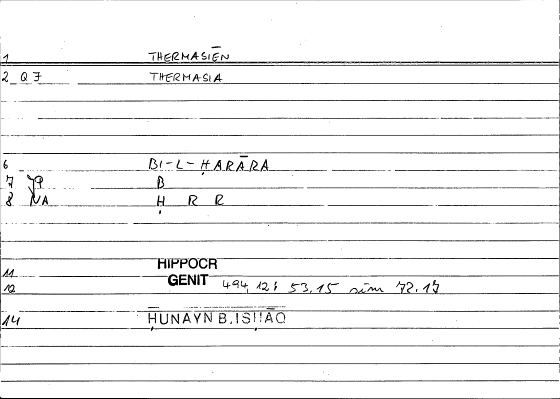 1 THERMASIĒN
2 Q7 THERMASIA
6 BI-L-ḤARĀRA
7 JP B
8 NA Ḥ R R
11 HIPPOCR
12 GENIT 494,12: 53.15 sim 72.17
14 ḤUNAYN B. ISḤĀQ